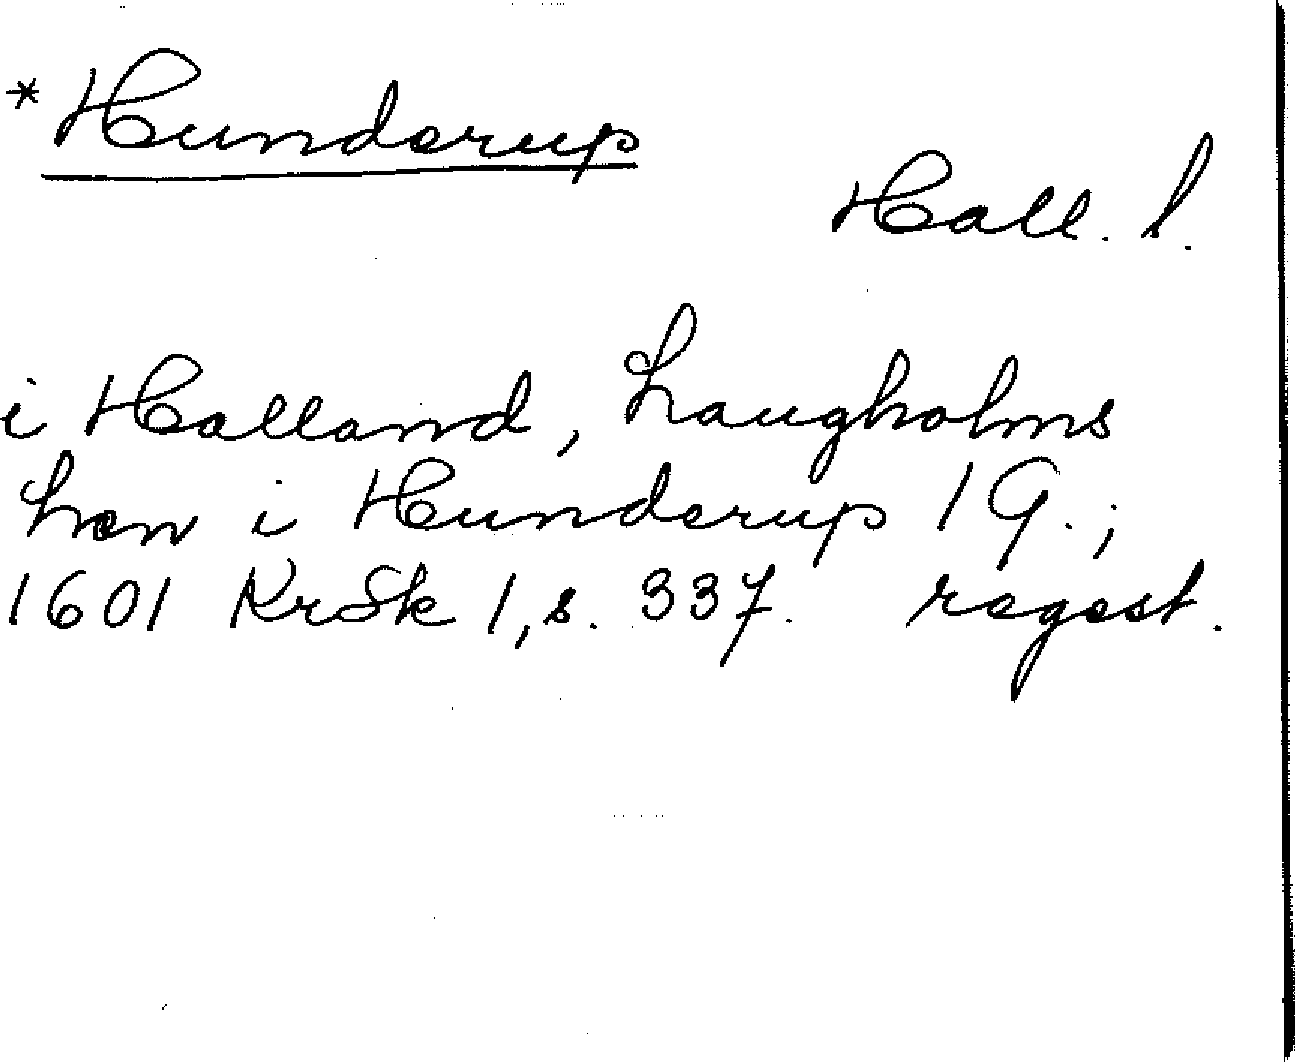 *Hunderup
Hall. l.
i Halland, Laugholms
Len i Hunderup 1 G.;
1601 KrSk 1, s. 337. regest.